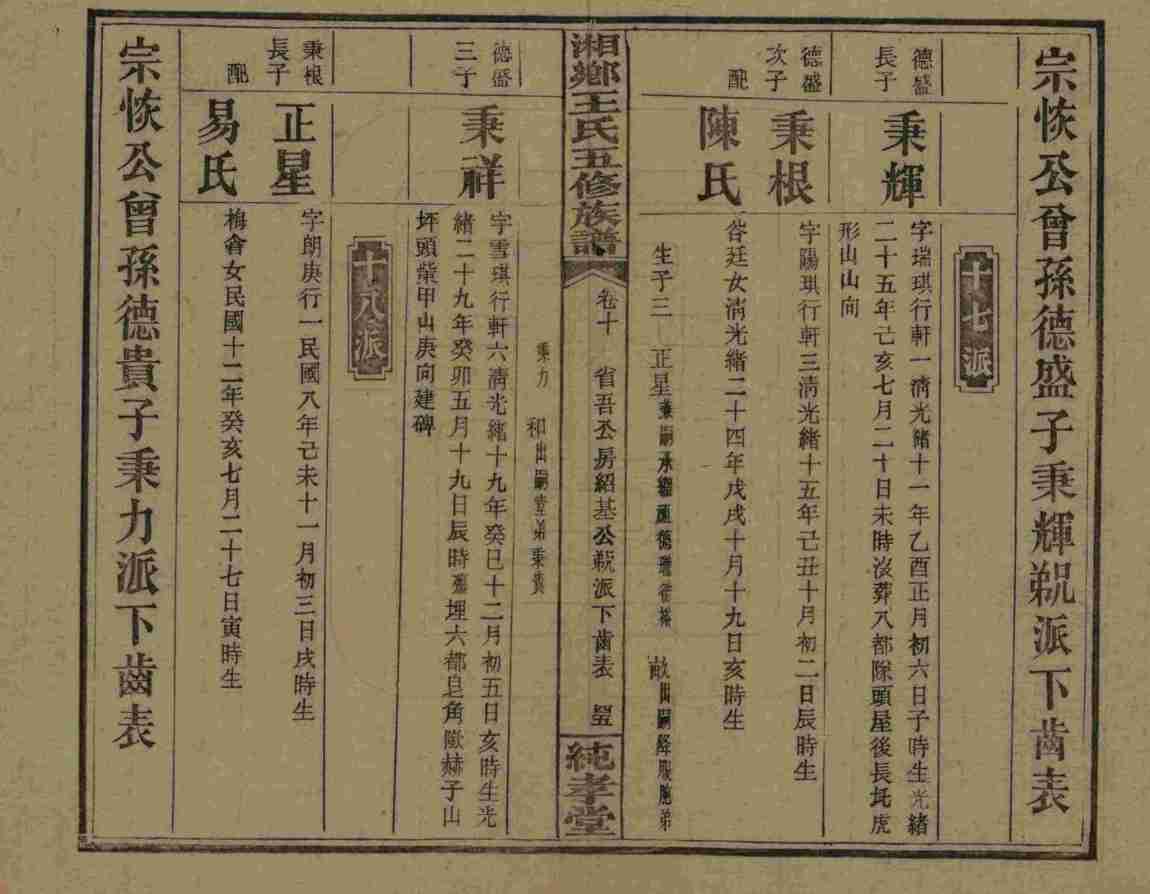 宗恢公曾孫德盛子秉輝覜派下齒表
十七派
德盛長子
秉輝
字瑞琪行軒一清光緒十一年乙酉正月初六日子時生光緒
二十五年己亥七月二十日未時沒葬八都隊頭屋後長坵虎
形山山向
德盛次子
秉根
字陽琪行軒三清光緒十五年己丑十月初二日辰時生
配
陳氏
咨廷女清光緒二十四年戊戌十月十九日亥時生
生子三 正星
湘鄉王氏五修族譜
卷十 省吾公房紹基公覜派下齒表
純孝堂
秉力 和出嗣堂弟秉貴
德盛三子
秉祥
字雪琪行軒六清光緒十九年癸巳十二月初五日亥時生光
緒二十九年癸卯五月十九日辰時薨埋六都皂角歐赫子山
坪頭柴甲山庚向建碑
十八派
秉根長子
正星
字朗庚行一民國八年己未十一月初三日戌時生
配
易氏
梅會女民國十二年癸亥七月二十七日寅時生
宗恢公曾孫德貴子秉力派下齒表